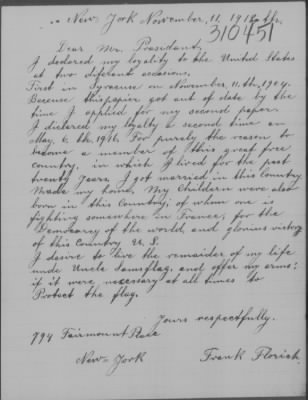 New York November, 11, 1918 th.
310451
Dear Mr. Preasedant,
I declared my loyality to the United States
at two diferent occasions,
First in Syracuse on November, 11, th, 1904.
Beceuse this paper got out of date by the
time I applied for my second paper.
I declered my loyalty a second time on
May, 6, th, 1916, For purely the reason to
become a member of this great free
country, in which I lived for the past
twenty years. I got married in this Country
Made my home, My Childern were also
born in this Country, of whom one is
fighting somewhere in France, for the
Democracy of the world, and glorius victory
of this Country U. S.
I desire to live the remaider of my life
unde Uncle Sams flag, and offer my arms,
if it were necessary at all times to
Protect the flag.
Yours respectfully.
794 Fairmount Place
New-York Frank Florich